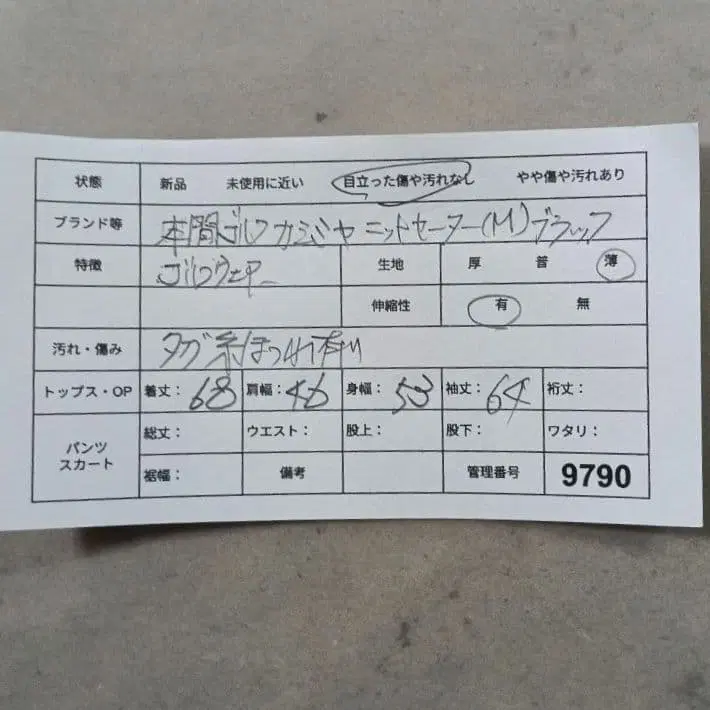 状態 新品 未使用に近い 目立った傷や汚れなし やや傷や汚れあり
ブランド等 本間ゴルフ カシミヤ ニットセーター(M)ブラック
特徴 ゴルフウェアー 生地 厚 普 薄
伸縮性 有 無
汚れ・傷み タグ糸ほつれ有り
トップス・OP 着丈: 68 肩幅: 46 身幅: 53 袖丈: 64 裄丈:
パンツ スカート 総丈: ウエスト: 股上: 股下: ワタリ:
裾幅: 備考 管理番号 9790